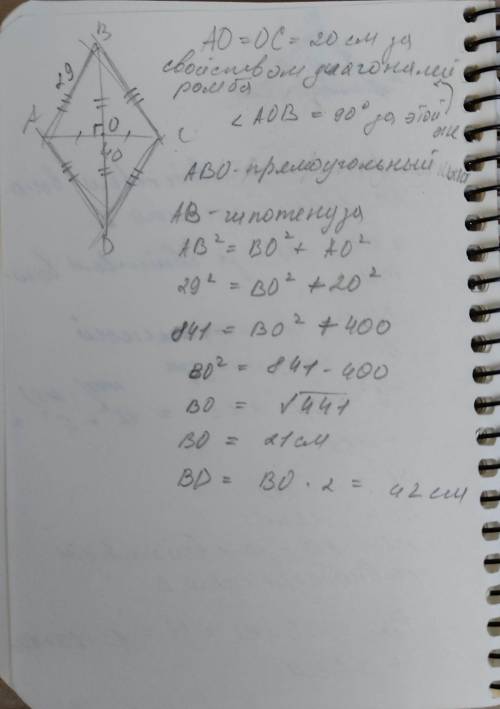 B
29
A
O
C
40
D
AO = OC = 20 см за
свойством диагоналей
ромба
∠AOB = 90° за этой
же
ABO - прямоугольный
AB - гипотенуза
AB² = BO² + AO²
29² = BO² + 20²
841 = BO² + 400
BO² = 841 - 400
BO = √441
BO = 21 см
BD = BO · 2 = 42 см